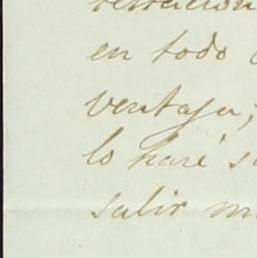 en todo
ventaja;
lo haré s
salir m